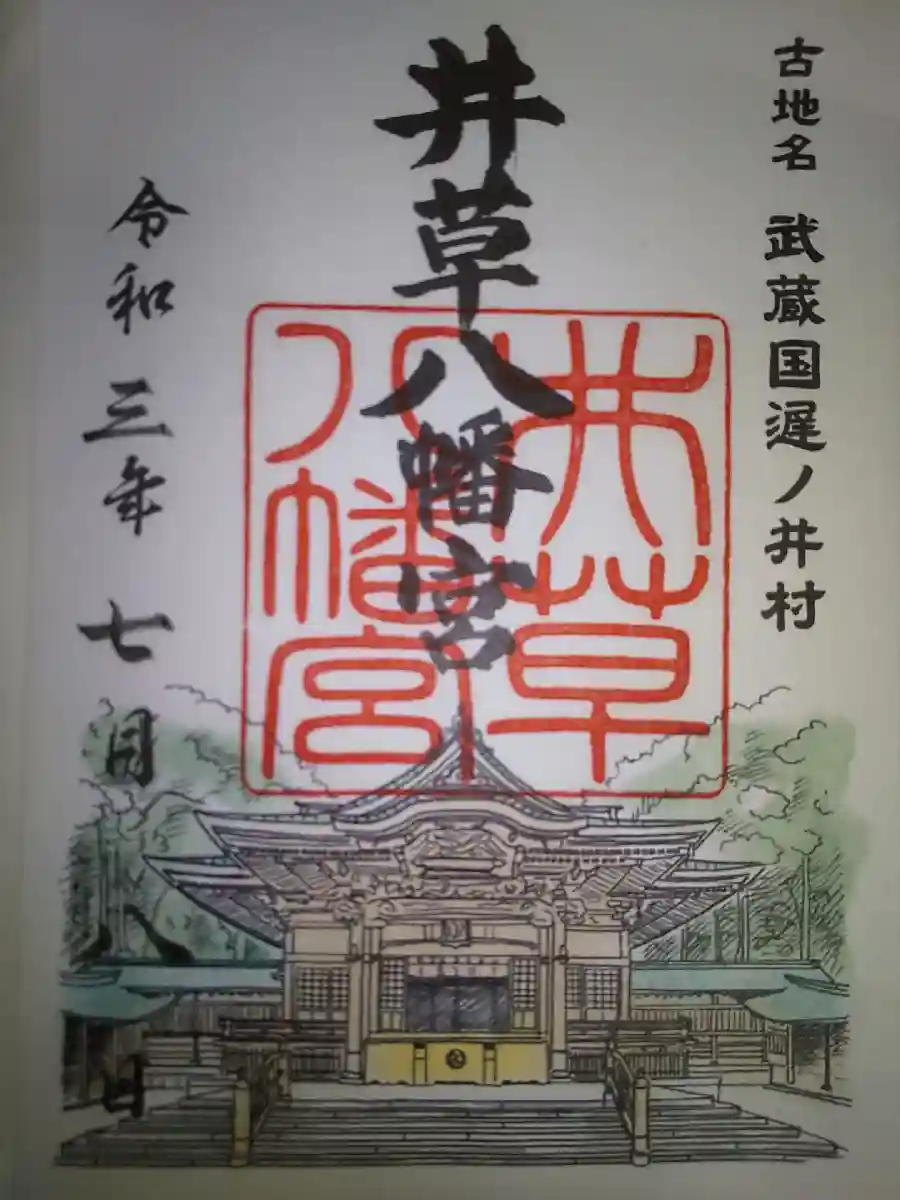 古地名 武蔵国遅ノ井村
井草八幡宮
井草
八幡宮
令和三年七月八日